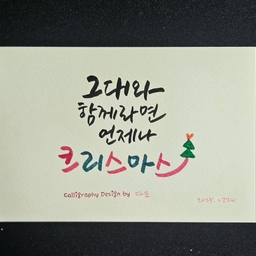 그대와
함께라면
언제나
크리스마스
Calligraphy Design by